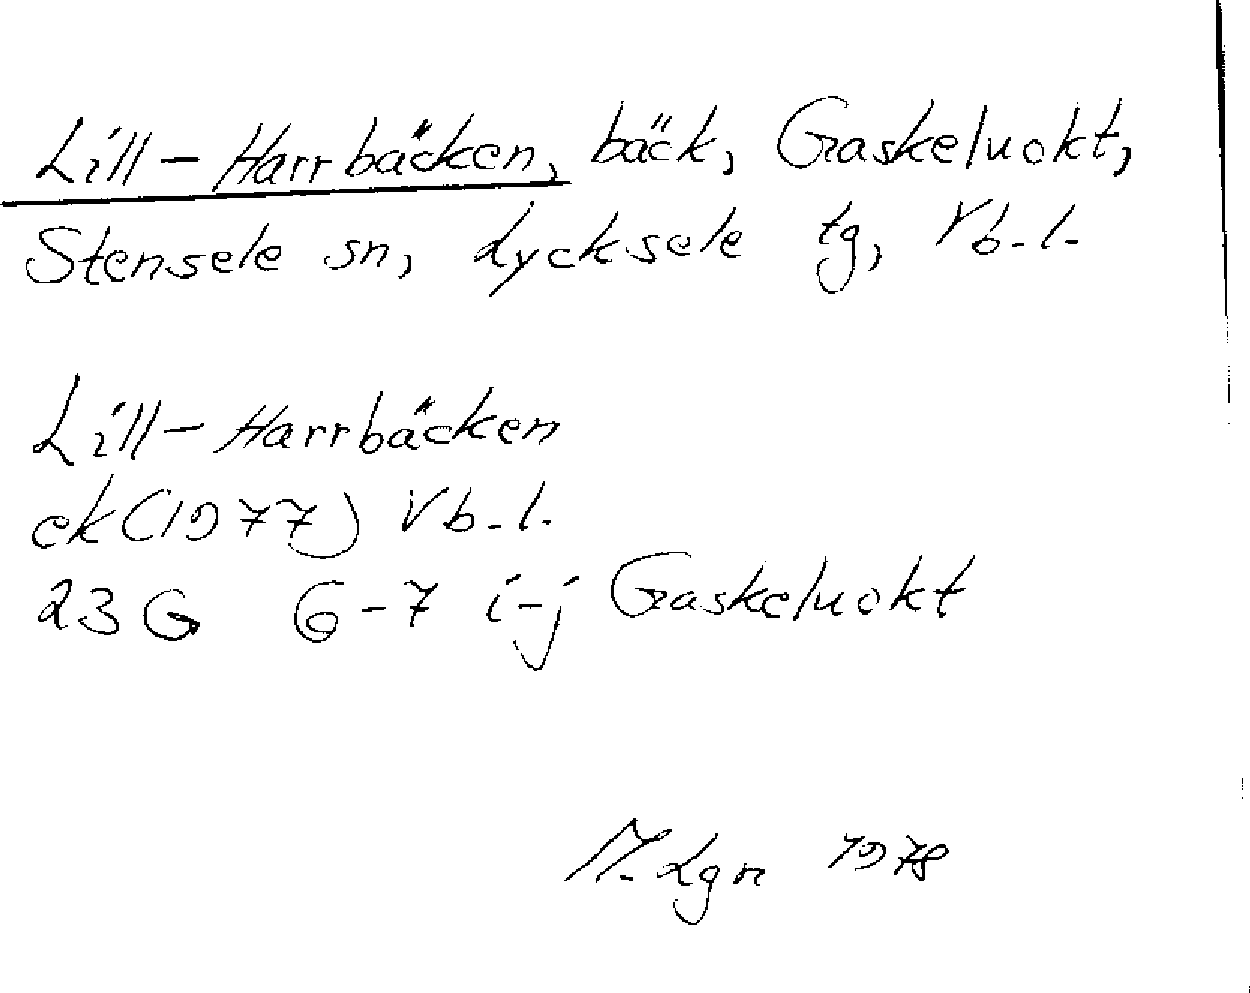 Lill-Harrbäcken, bäck, Gaskeluokt,
Stensele sn, Lycksele tg, Vb.l.
Lill-Harrbäcken
ek (1977) Vb.l.
23 G 6-7 i-j Gaskeluokt
M. Lgn 1978